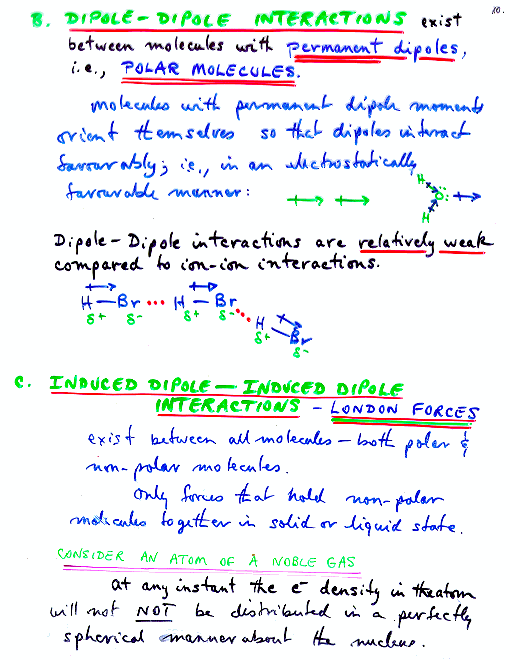 10.
B. DIPOLE-DIPOLE INTERACTIONS exist
between molecules with permanent dipoles,
i.e., POLAR MOLECULES.
molecules with permanent dipole moments
orient themselves so that dipoles interact
favourably; i.e., in an electrostatically
favourable manner:
H
O:
H
Dipole-Dipole interactions are relatively weak
compared to ion-ion interactions.
H—Br ••• H—Br
δ+ δ- δ+ δ- ••• H—Br
δ+ δ-
C. INDUCED DIPOLE—INDUCED DIPOLE
INTERACTIONS - LONDON FORCES
exist between all molecules - both polar &
non-polar molecules.
Only forces that hold non-polar
molecules together in solid or liquid state.
CONSIDER AN ATOM OF A NOBLE GAS
at any instant the e⁻ density in the atom
will not NOT be distributed in a perfectly
spherical manner about the nucleus.